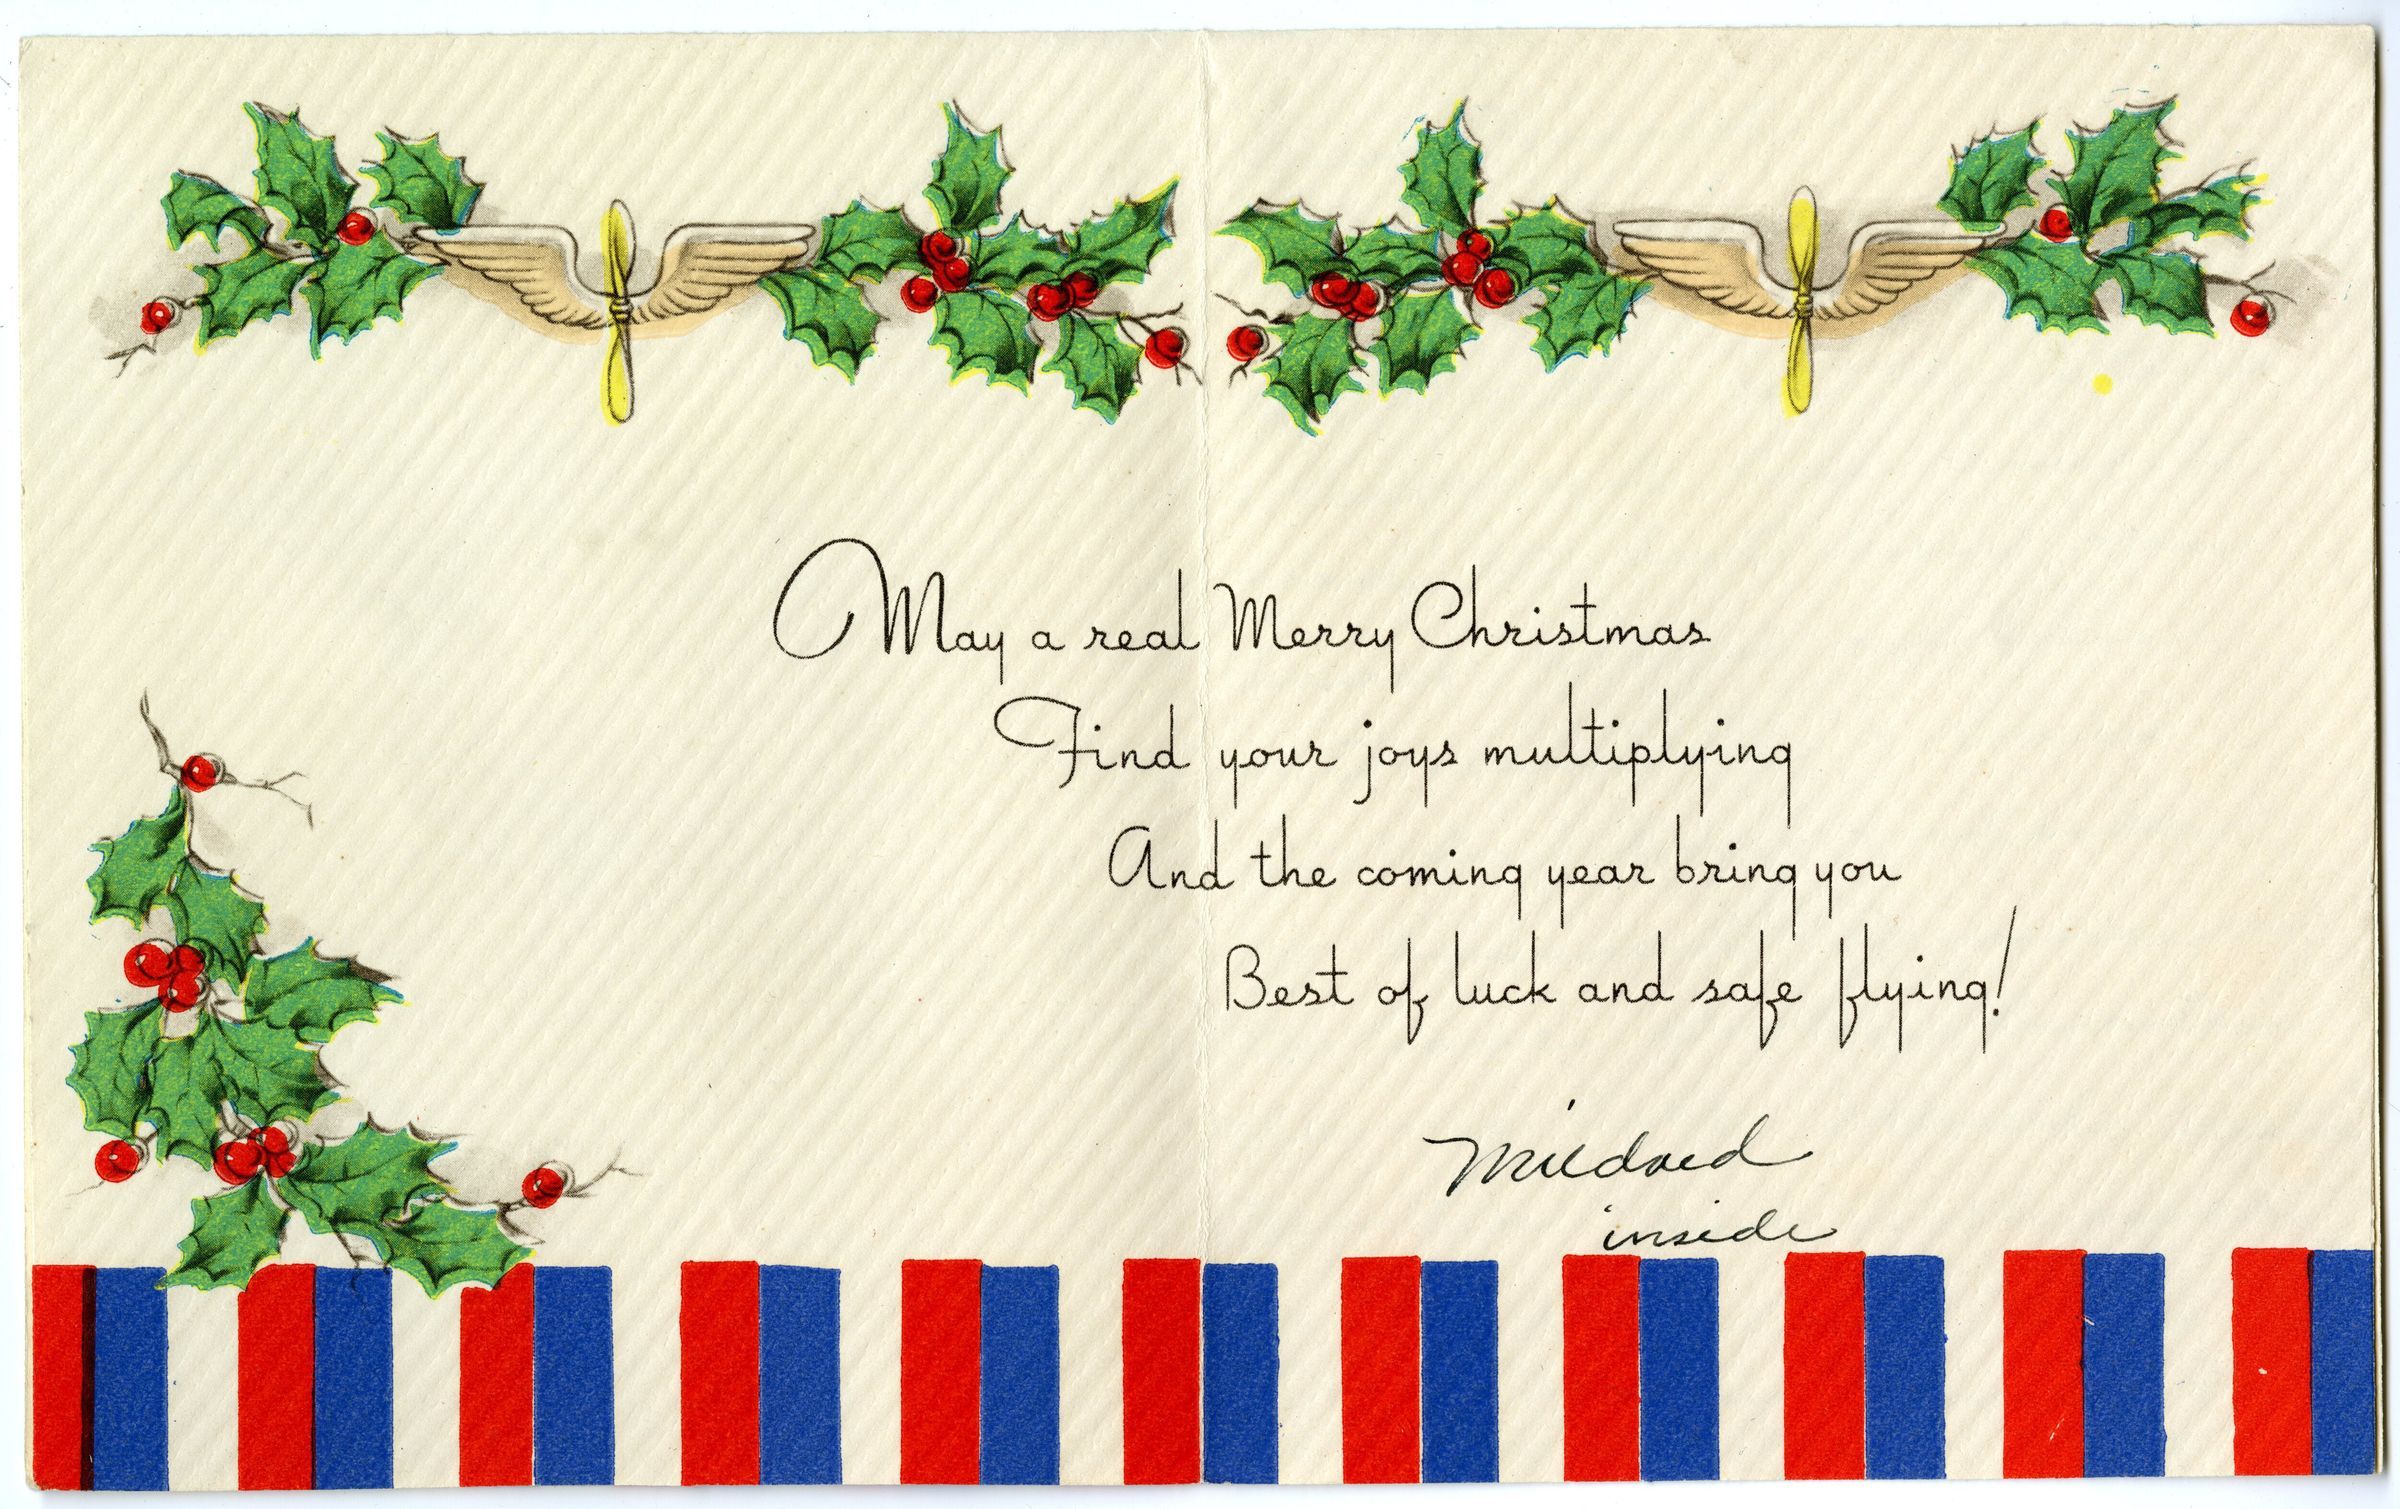 May a real Merry Christmas
Find your joys multiplying
And the coming year bring you
Best of luck and safe flying!
Mildred
inside